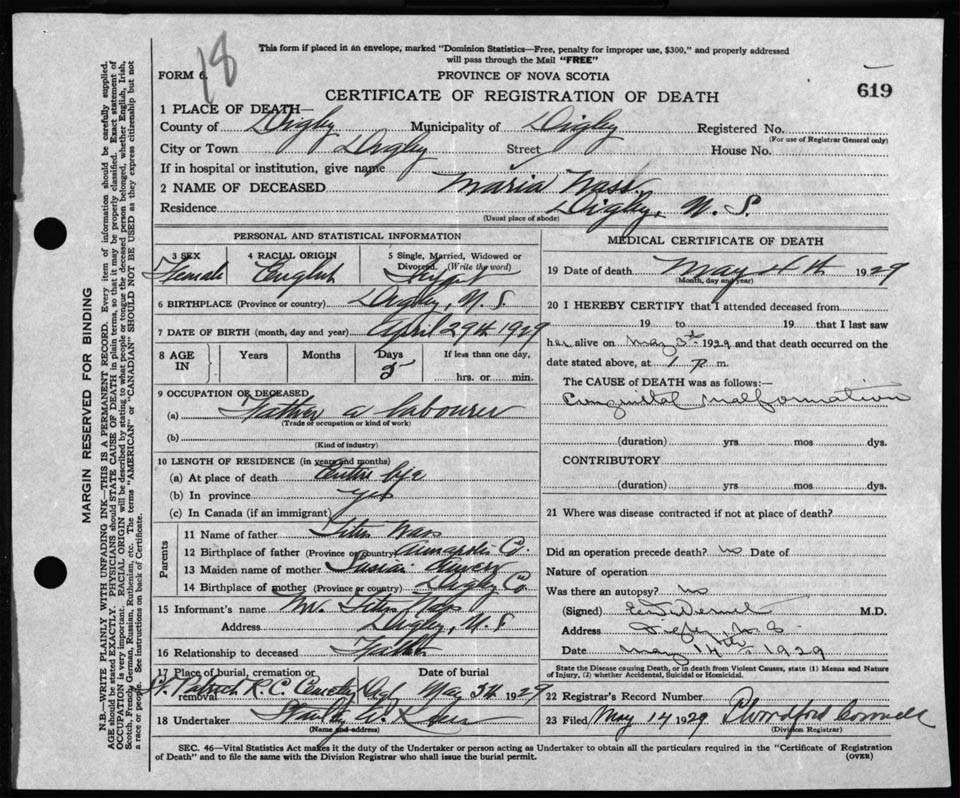 18
This form if placed in an envelope, marked "Dominion Statistics—Free, penalty for improper use, $300," and properly addressed
will pass through the Mail "FREE"
FORM 6.
PROVINCE OF NOVA SCOTIA
CERTIFICATE OF REGISTRATION OF DEATH
619
1 PLACE OF DEATH—
County of Digby Municipality of Digby Registered No.
(For use of Registrar General only)
City or Town Digby Street House No.
If in hospital or institution, give name
2 NAME OF DECEASED Maria Nass
Residence Digby, N. S.
(Usual place of abode)
PERSONAL AND STATISTICAL INFORMATION
3 SEX 4 RACIAL ORIGIN 5 Single, Married, Widowed or
Divorced (Write the word)
Female English
6 BIRTHPLACE (Province or country) Digby, N. S.
7 DATE OF BIRTH (month, day and year) April 29th 1929
8 AGE IN Years Months Days If less than one day,
5 hrs. or min.
9 OCCUPATION OF DECEASED
(a) Father a labourer
(Trade or occupation or kind of work)
(b)
(Kind of industry)
10 LENGTH OF RESIDENCE (in years and months)
(a) At place of death Entire life
(b) In province yes
(c) In Canada (if an immigrant)
Parents
11 Name of father Titus Nass
12 Birthplace of father (Province or country) Annapolis Co.
13 Maiden name of mother
14 Birthplace of mother (Province or country) Digby Co.
15 Informant's name Mr. Titus Nass
Address Digby, N. S.
16 Relationship to deceased Father
17 Place of burial, cremation or removal Date of burial
St. Patrick R. C. Cemetery Digby May 5th 1929
18 Undertaker
(Name and address)
MEDICAL CERTIFICATE OF DEATH
19 Date of death May 4th 1929
(Month, day and year)
20 I HEREBY CERTIFY that I attended deceased from
19 to 19 that I last saw
her alive on May 3d 1929 and that death occurred on the
date stated above, at 1 P. m.
The CAUSE OF DEATH was as follows:—
Congenital malformation
(duration) yrs mos dys.
CONTRIBUTORY
(duration) yrs mos dys.
21 Where was disease contracted if not at place of death?
Did an operation precede death? no Date of
Nature of operation
Was there an autopsy? no
(Signed) M.D.
Address Digby N S
Date May 14th 1929
State the Disease causing Death, or in death from Violent Causes, state (1) Means and Nature
of Injury, (2) whether Accidental, Suicidal or Homicidal.
22 Registrar's Record Number
23 Filed May 14 1929
(Division Registrar)
SEC. 46—Vital Statistics Act makes it the duty of the Undertaker or person acting as Undertaker to obtain all the particulars required in the "Certificate of Registration
of Death" and to file the same with the Division Registrar who shall issue the burial permit.
(OVER)
MARGIN RESERVED FOR BINDING
N.B.—WRITE PLAINLY WITH UNFADING INK—THIS IS A PERMANENT RECORD. Every item of information should be carefully supplied.
AGE should be stated EXACTLY. PHYSICIANS should STATE CAUSE OF DEATH in plain terms, so that it may be properly classified. Exact statement of
OCCUPATION is very important. RACIAL ORIGIN will be described by stating to what people or tongue the deceased person belonged, whether English, Irish,
Scotch, French, German, Russian, Ruthenian, etc. The terms "AMERICAN" or "CANADIAN" SHOULD NOT BE USED as they express citizenship but not
a race or people. See instructions on back of Certificate.